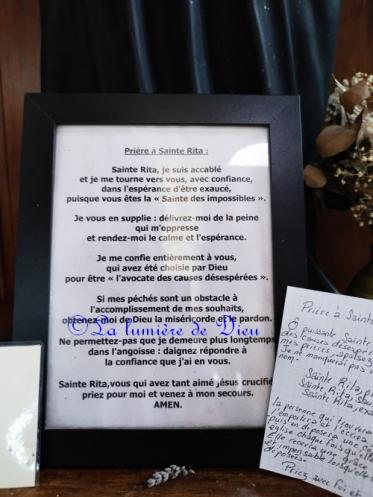 Prière à Sainte Rita :
Sainte Rita, je suis accablé
et je me tourne vers vous, avec confiance,
dans l'espérance d'être exaucé,
puisque vous êtes la « Sainte des impossibles ».
Je vous en supplie : délivrez-moi de la peine
qui m'oppresse
et rendez-moi le calme et l'espérance.
Je me confie entièrement à vous,
qui avez été choisie par Dieu
pour être « l'avocate des causes désespérées ».
Si mes péchés sont un obstacle à
l'accomplissement de mes souhaits,
obtenez-moi de Dieu la miséricorde et le pardon.
©La lumière de Dieu
Ne permettez-pas que je demeure plus longtemps
dans l'angoisse : daignez répondre à
la confiance que j'ai en vous.
Sainte Rita,vous qui avez tant aimé jésus crucifié
priez pour moi et venez à mon secours.
AMEN.
Prière à Sainte
Ô puissante Sainte
causes désespé
mes prières
Je ne manquerai pas
nom.
Sainte Rita, p
Sainte Rita
Sainte Rita,
la personne qui trouvera
l'emportera et l'écrira
puis en déposera une c
église chaque fois qu'elle
Elle recevra une grâce
et impensable lorsqu'elle
déposée.
Priez avec foi et